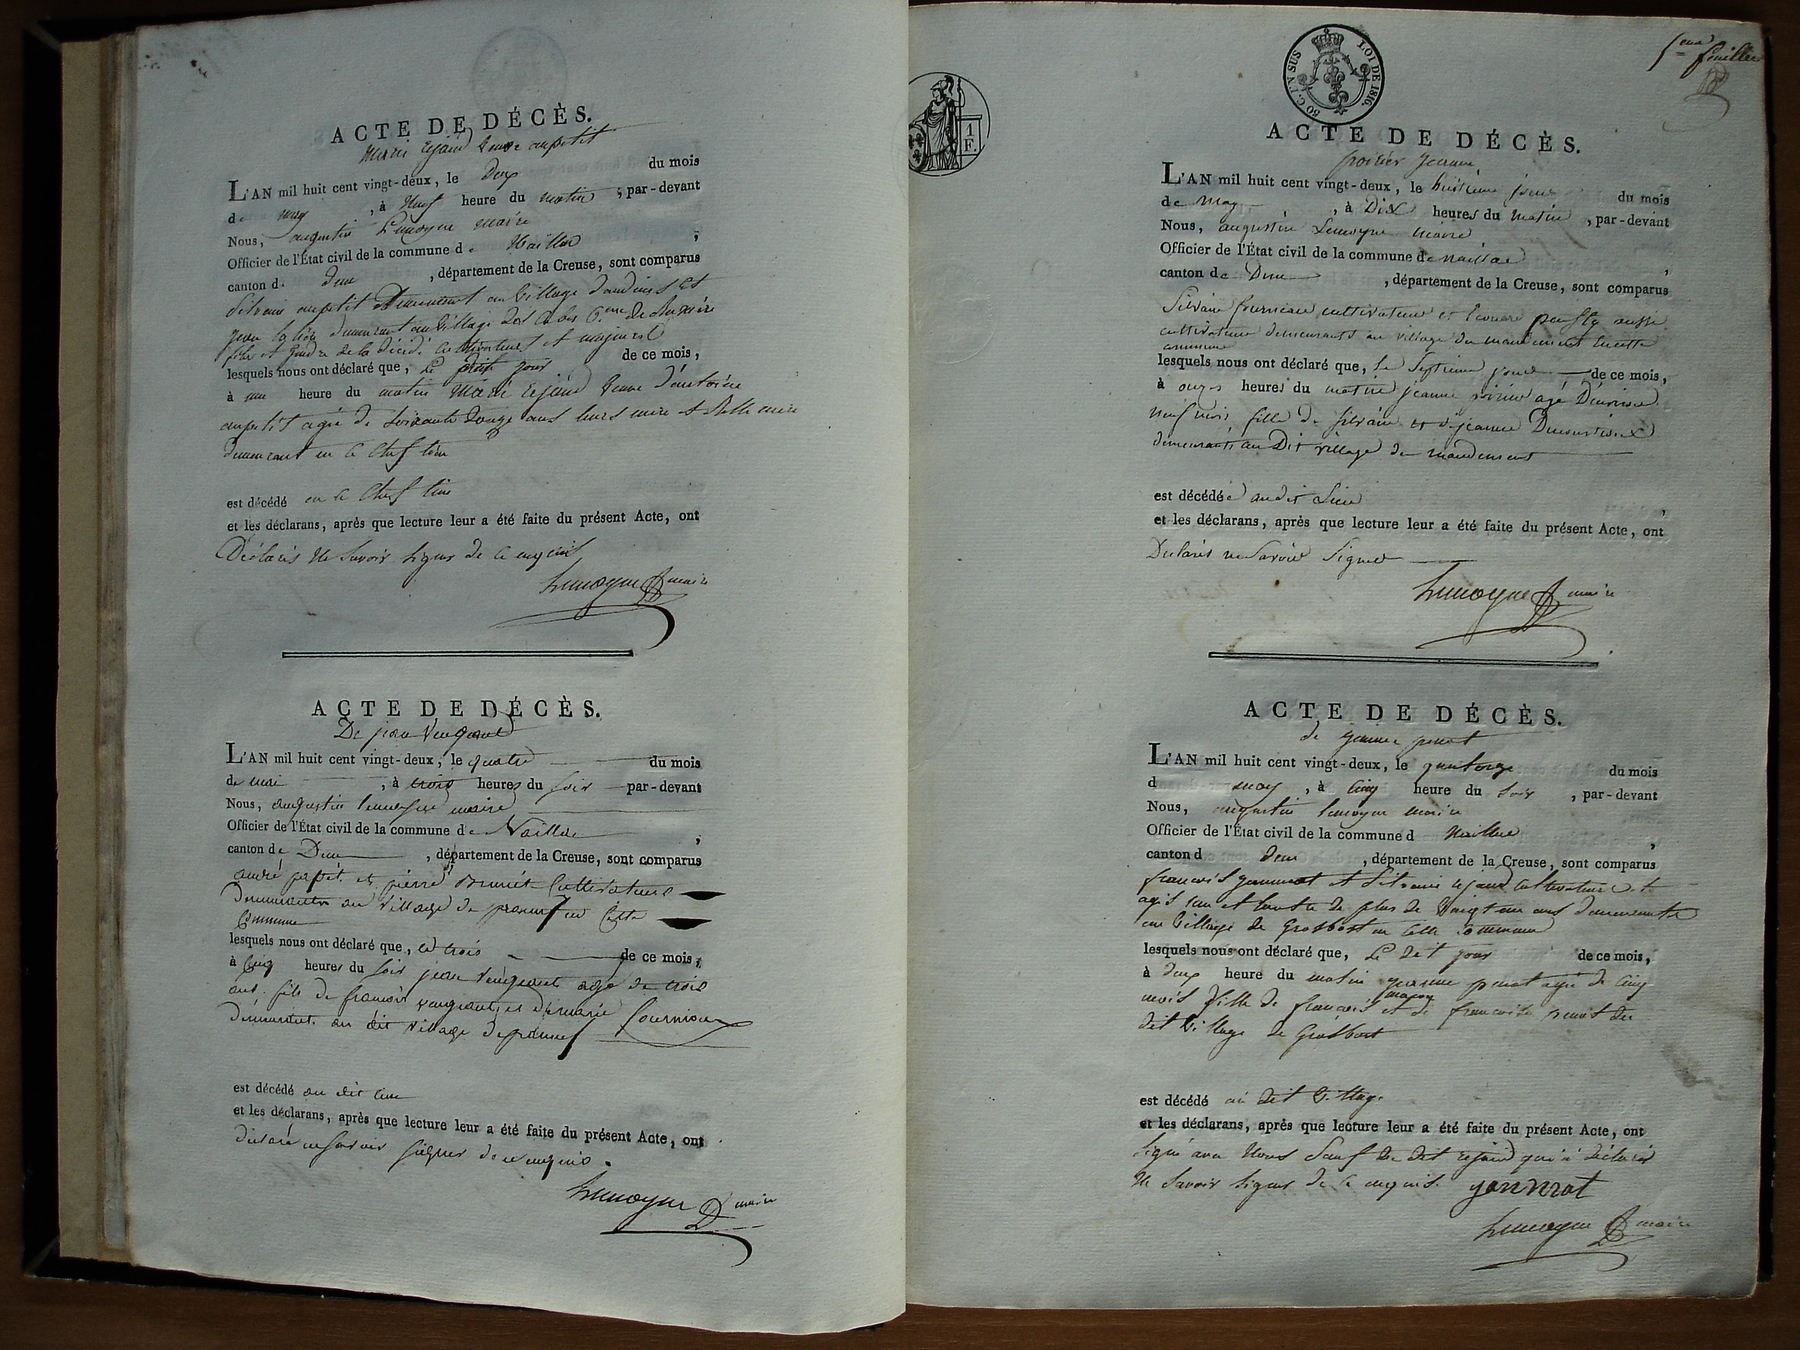 ACTE DE DÉCÈS.
Marie Lejaud Veuve aupetit
L'AN mil huit cent vingt-deux, le deux du mois
de may, à Neuf heure du matin, par-devant
Nous, augustin Lemoyne maire
Officier de l'État civil de la commune de Naillac,
canton de dun, département de la Creuse, sont comparus
Silvain aupetit demeurant au village
jean demeurant au village des
cultivateurs et majeurs
lesquels nous ont déclaré que, le dit jour de ce mois,
à une heure du matin Marie Lejaud Veuve d'antoine
aupetit agée de soixante douze ans leurs mere et Belle mere
demeurant en ce Chef lieu
est décédé en ce Chef lieu
et les déclarans, après que lecture leur a été faite du présent Acte, ont
Déclarés ne Savoir Signer de ce enquis
Lemoyne maire
ACTE DE DÉCÈS.
De jean Vengeant
L'AN mil huit cent vingt-deux, le quatre du mois
de mai, à trois heures du soir par-devant
Nous, augustin lemoyne maire
Officier de l'État civil de la commune de Naillac,
canton de Dun, département de la Creuse, sont comparus
andré et pierre Brunet Cultivateurs
Demeurants au village de en Cette
Commune
lesquels nous ont déclaré que, le trois de ce mois,
à Cinq heures du soir jean Vengeant agé de trois
ans, fils de françois vengeant, et de marie fournioux
Demeurant au dit village de
est décédé au dit lieu
et les déclarans, après que lecture leur a été faite du présent Acte, ont
déclaré ne savoir signer de ce enquis.
Lemoyne maire
60 C. EN SUS LOI DE 1816.
1 F.
5eme feuillet
ACTE DE DÉCÈS.
poirier jeanne
L'AN mil huit cent vingt-deux, le huitieme jour du mois
de may, à Dix heures du matin, par-devant
Nous, augustin Lemoyne maire
Officier de l'État civil de la commune de naillac,
canton de Dun, département de la Creuse, sont comparus
Silvain fourniaux cultivateur et aussi
cultivateur demeurants au village du mandement en cette
commune
lesquels nous ont déclaré que, le Septieme jour de ce mois,
à onze heures du matin jeanne poirier agé D'environ
neuf mois, fille de Silvain et de jeanne
demeurants au Dit village du mandement
est décédée audit Lieu
et les déclarans, après que lecture leur a été faite du présent Acte, ont
Declarés ne Savoir Signer
Lemoyne maire
ACTE DE DÉCÈS.
de jeanne penot
L'AN mil huit cent vingt-deux, le quatorze du mois
d may, à Cinq heure du soir, par-devant
Nous, augustin lemoyne maire
Officier de l'État civil de la commune d Naillac,
canton d dun, département de la Creuse, sont comparus
françois yannerat et Silvain Lejaud Cultivateurs
agés l'un et l'autre de plus de Vaingt un ans demeurants
au Village de Grosbost en Cette Commune
lesquels nous ont déclaré que, le dit jour de ce mois,
à deux heure du matin jeanne penot agée de Cinq
maçon
mois fille de françois et de françoise penot du
dit Village de Grosbost
est décédé au dit Village
et les déclarans, après que lecture leur a été faite du présent Acte, ont
Signé avec Nous Sauf le dit Lejaud qui à déclaré
Ne Savoir Signer de ce enquis. yannerat
Lemoyne maire